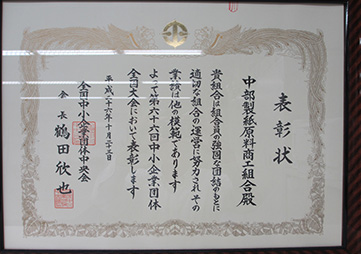 表彰状
中部製紙原料商工組合殿
貴組合は組合員の強固な団結のもとに
適切な組合の運営に努力されその
業績は他の模範であります
よって第六十六回中小企業団体
全国大会において表彰します
平成二十六年十月二十三日
全国中小企業団体中央会
会長 鶴田欣也